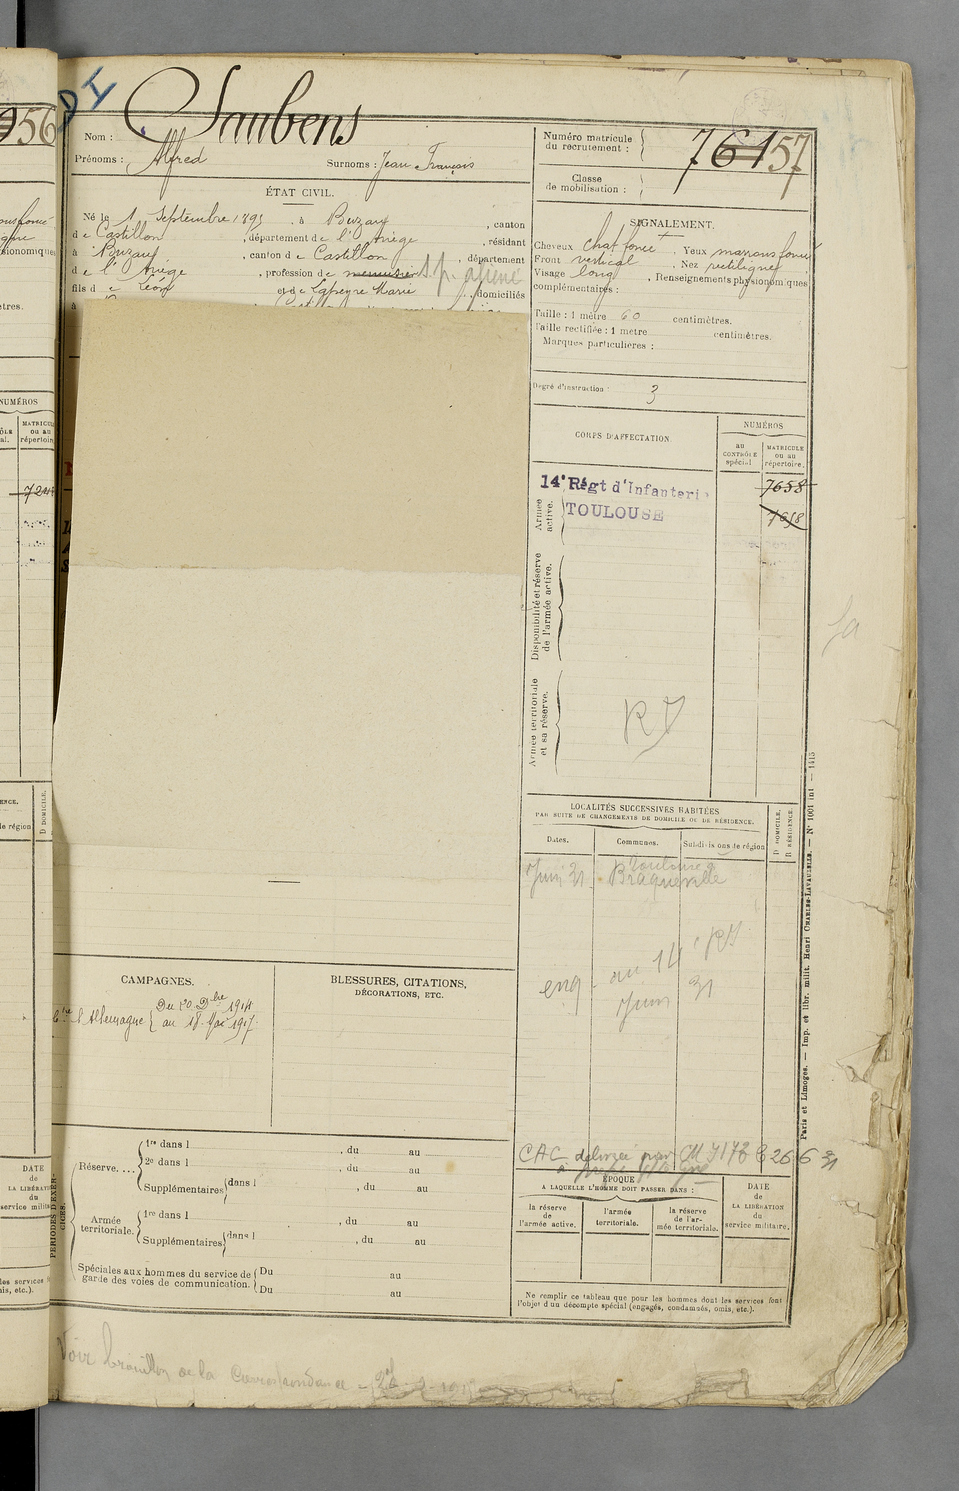 956
DI
Nom : Saubens
Prénoms : Alfred Surnoms : Jean François
Numéro matricule du recrutement : 76157
Classe de mobilisation :
ÉTAT CIVIL.
Né le 1 Septembre 1895 à Buzan, canton
de Castillon, département de l'Ariège, résidant
à Buzan, canton de Castillon, département
de l'Ariège, profession de menuisier s.p. aliéné
fils d e Léon et de Lapeyre Marie, domiciliés
SIGNALEMENT.
Cheveux chat foncé. Yeux marrons foncé
Front vertical. Nez rectiligne
Visage long, Renseignements physionomiques
complémentaires :
Taille : 1 mètre 60 centimètres.
Taille rectifiée : 1 mètre centimètres.
Marques particulières :
Degré d'instruction : 3
CORPS D'AFFECTATION.
NUMÉROS
au CONTRÔLE spécial
MATRICULE ou au répertoire.
14e Régt d'Infanterie
TOULOUSE
7658
7658
Armée active.
Disponibilité et réserve de l'armée active.
Armée territoriale et sa réserve.
LOCALITÉS SUCCESSIVES HABITÉES
PAR SUITE DE CHANGEMENTS DE DOMICILE OU DE RÉSIDENCE.
Dates. Communes. Subdivisions de région
D DOMICILE.
R RÉSIDENCE.
Toulouse
Juin 31 Braqueville
enq. au 14
Juin 31
CAMPAGNES.
Ctre l'Allemagne { Du 20 Dbre 1914
au 18 Mai 1917
BLESSURES, CITATIONS,
DÉCORATIONS, ETC.
PÉRIODES D'EXERCICES.
Réserve.... 1re dans l , du au
2e dans l , du au
Supplémentaires dans l , du au
Armée territoriale. 1re dans l , du au
Supplémentaires dans l , du au
Spéciales aux hommes du service de garde des voies de communication. Du au
Du au
CAC
ÉPOQUE
A LAQUELLE L'HOMME DOIT PASSER DANS :
la réserve de l'armée active.
l'armée territoriale.
la réserve de l'armée territoriale.
DATE de LA LIBÉRATION du service militaire.
Ne remplir ce tableau que pour les hommes dont les services font
l'objet d'un décompte spécial (engagés, condamnés, omis, etc.).
Paris et Limoges. — Imp. et libr. milit. Henri CHARLES-LAVAUZELLE. — N° 1001 int — 1415
Voir brouillon de la Correspondance